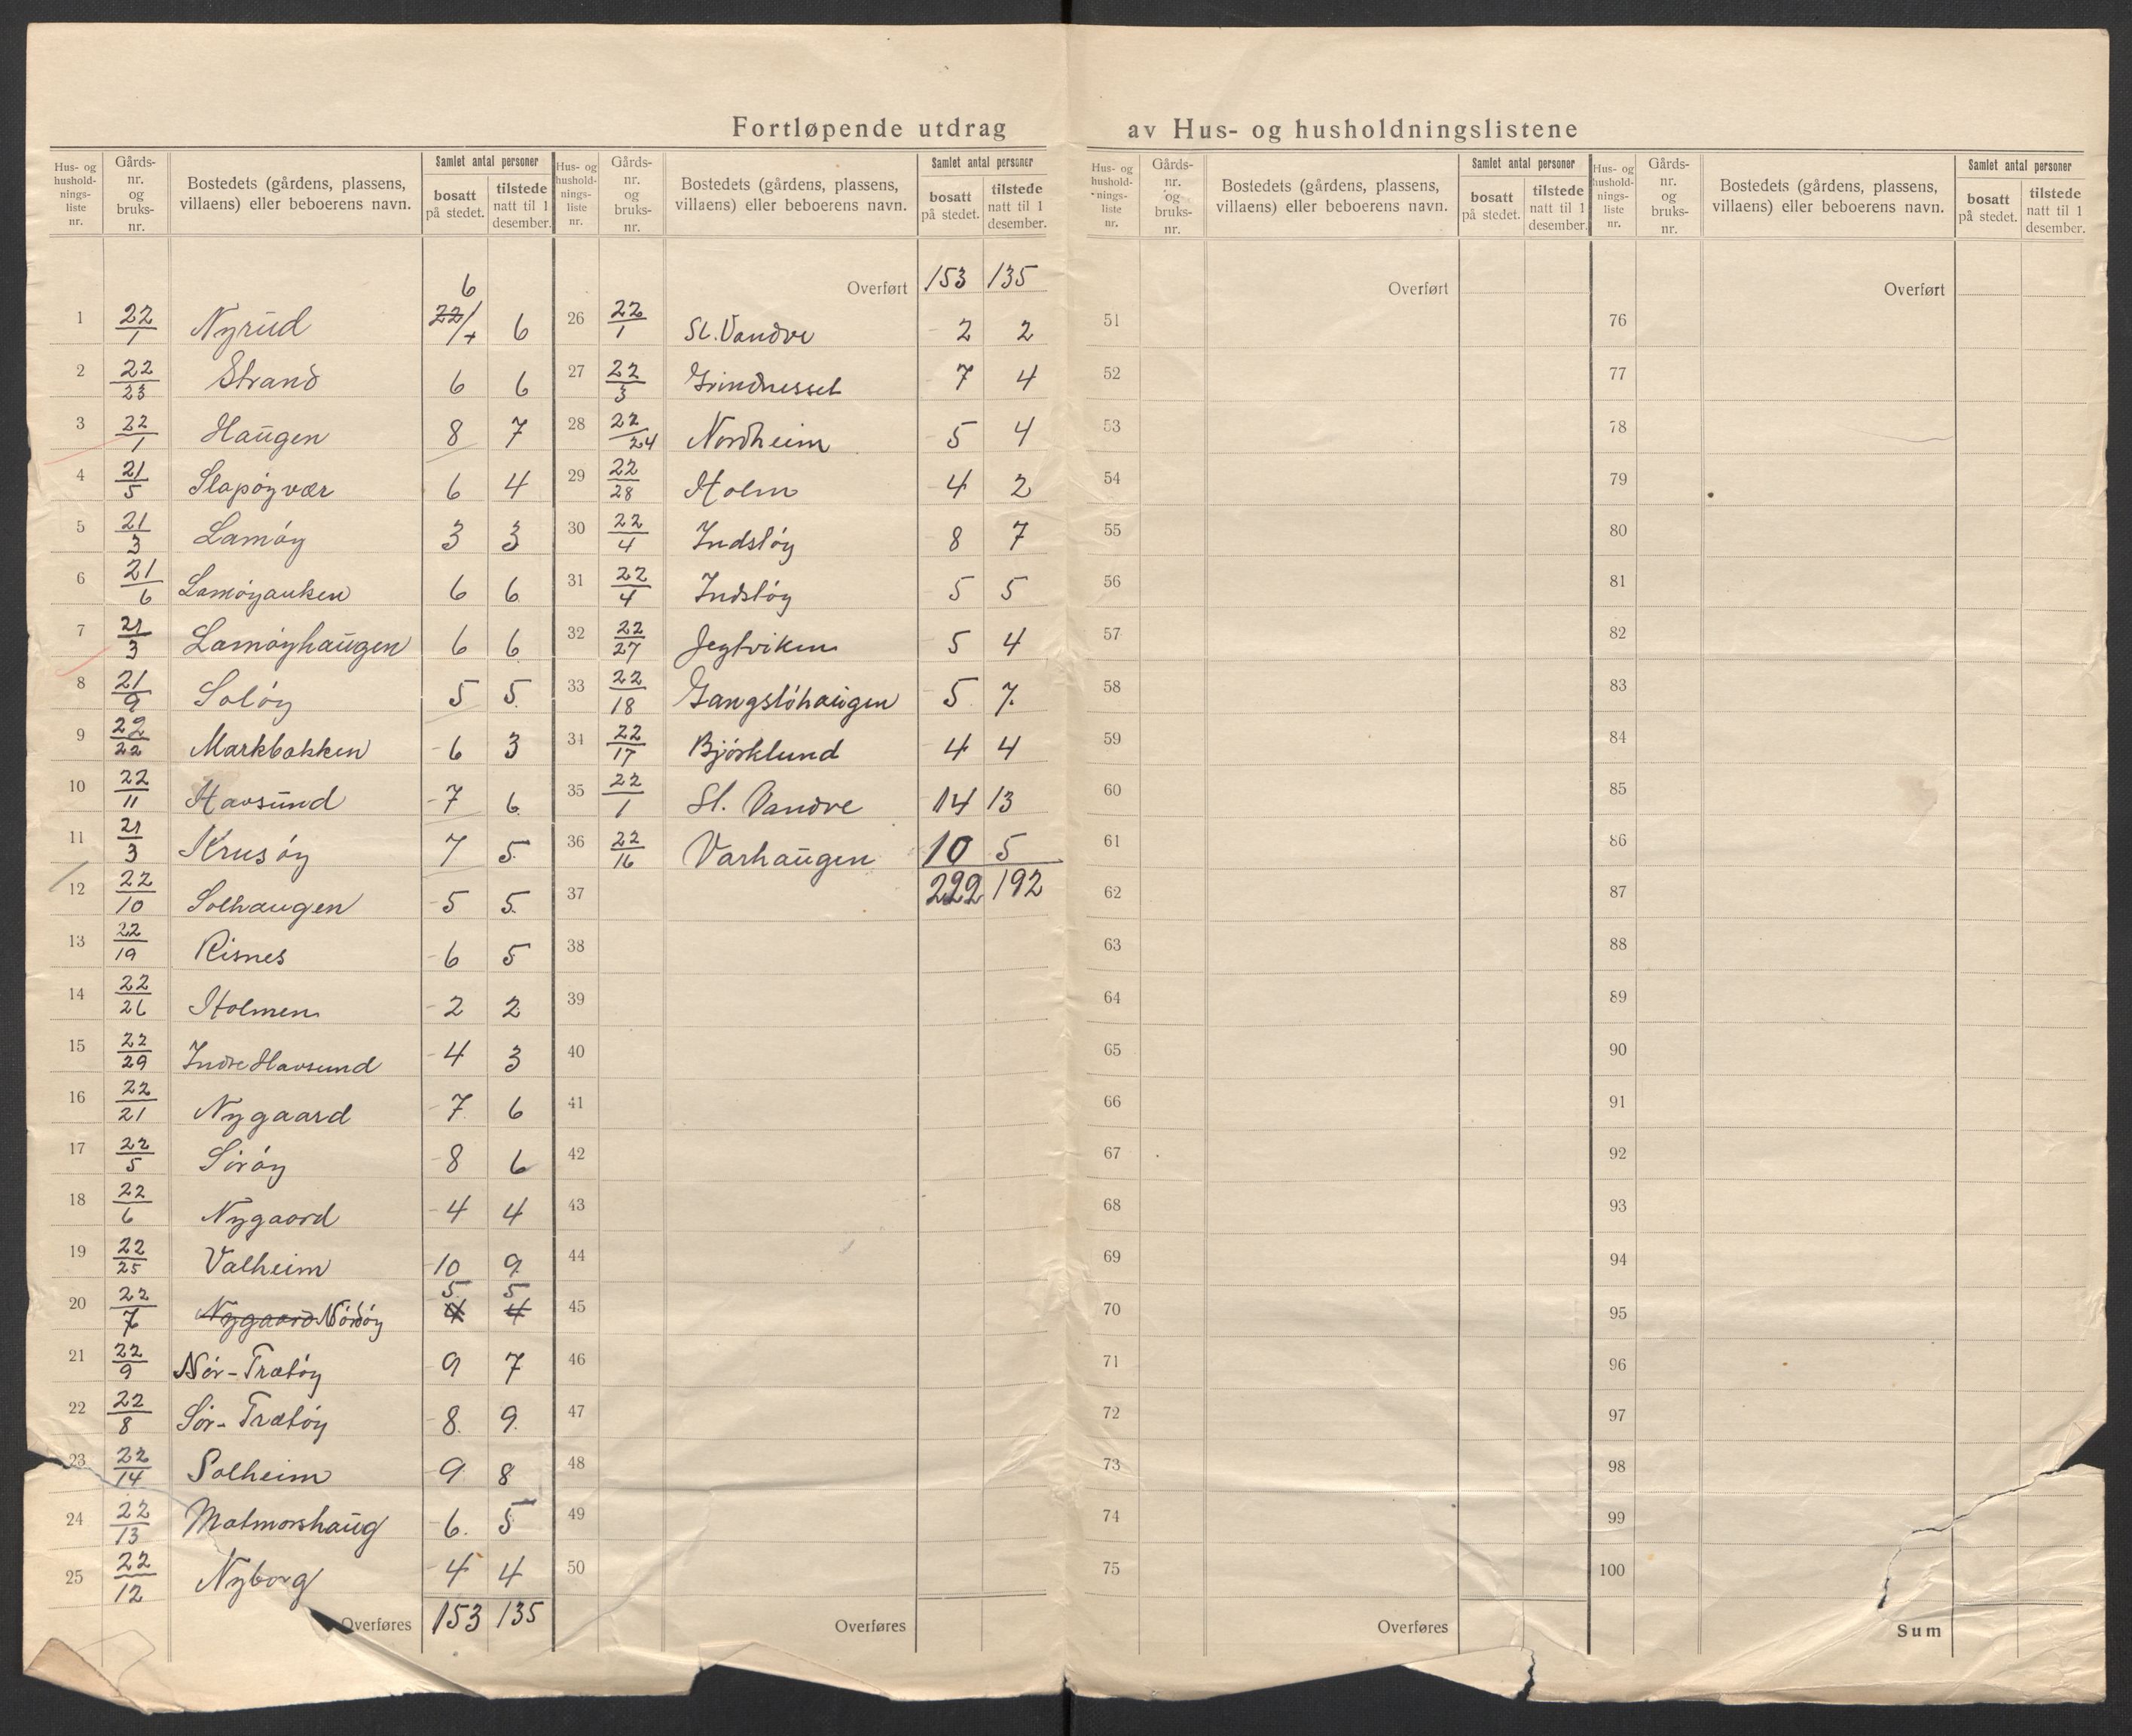 Fortløpende utdrag av Hus- og husholdningslistene
Hus- og husholdnings-liste nr. | Gårds-nr. og bruks-nr. | Bostedets (gårdens, plassens, villaens) eller beboerens navn. | Samlet antal personer bosatt på stedet. | tilstede natt til 1 desember.
6
1 22/1 Nyrud 22/1 6
2 22/23 Strand 6 6
3 22/1 Haugen 8 7
4 21/5 Slapøyvær 6 4
5 21/3 Lamøy 3 3
6 21/6 Lamøyauken 6 6
7 21/3 Lamøyhaugen 6 6
8 21/9 Soløy 5 5
9 22/22 Markbakken 6 3
10 22/11 Havsund 7 6
11 21/3 Krusøy 7 5
12 22/10 Solhaugen 5 5
13 22/19 Risnes 6 5
14 22/26 Holmen 2 2
15 22/29 Indre Havsund 4 3
16 22/21 Nygaard 7 6
17 22/5 Sørøy 8 6
18 22/6 Nygaard 4 4
19 22/25 Valheim 10 9
5 5
20 22/7 Nygaard Nordøy 4 4
21 22/9 Nor-Trætøy 9 7
22 22/8 Sør-Trætøy 8 9
23 22/14 Solheim 9 8
24 22/13 Matmorshaug 6 5
25 22/12 Nyborg 4 4
Overføres 153 135
Hus- og husholdnings-liste nr. | Gårds-nr. og bruks-nr. | Bostedets (gårdens, plassens, villaens) eller beboerens navn. | Samlet antal personer bosatt på stedet. | tilstede natt til 1 desember.
Overført 153 135
26 22/1 St. Vandve 2 2
27 22/3 Grindnesset 7 4
28 22/24 Nordheim 5 4
29 22/28 Holm 4 2
30 22/4 Indstøy 8 7
31 22/4 Indstøy 5 5
32 22/27 Jegtviken 5 4
33 22/18 Gangstøhaugen 5 7
34 22/17 Bjørklund 4 4
35 22/1 St. Vandve 14 13
36 22/16 Varhaugen 10 5
37 222 192
38
39
40
41
42
43
44
45
46
47
48
49
50
Overføres
Hus- og husholdnings-liste nr. | Gårds-nr. og bruks-nr. | Bostedets (gårdens, plassens, villaens) eller beboerens navn. | Samlet antal personer bosatt på stedet. | tilstede natt til 1 desember.
Overført
51
52
53
54
55
56
57
58
59
60
61
62
63
64
65
66
67
68
69
70
71
72
73
74
75
Overføres
Hus- og husholdnings-liste nr. | Gårds-nr. og bruks-nr. | Bostedets (gårdens, plassens, villaens) eller beboerens navn. | Samlet antal personer bosatt på stedet. | tilstede natt til 1 desember.
Overført
76
77
78
79
80
81
82
83
84
85
86
87
88
89
90
91
92
93
94
95
96
97
98
99
100
Sum